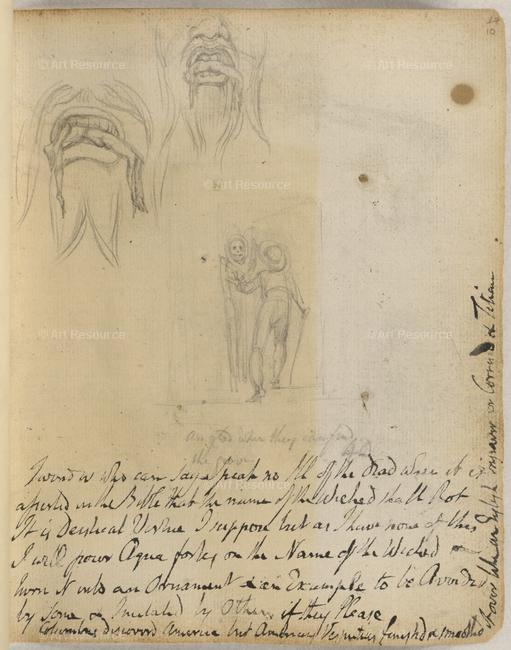 © Art Resource
© Art Resource
© Art Resource
© Art Resource
© Art Resource
are glad when they can find
the grave
I wonder who can say Speak no Ill of the Dead when it is
asserted in the Bible that the name of the Wicked shall Rot
It is Deistical Virtue I suppose but as I have none of this
I will pour Aqua fortis on the Name of the Wicked &
turn it into an Ornament & an Example to be Avoided
by Some & Imitated by Others if they Please
Columbus discoverd America but Americus Vesputius finishd & smoothd
it over like an English Engraver or Corregio & Titian